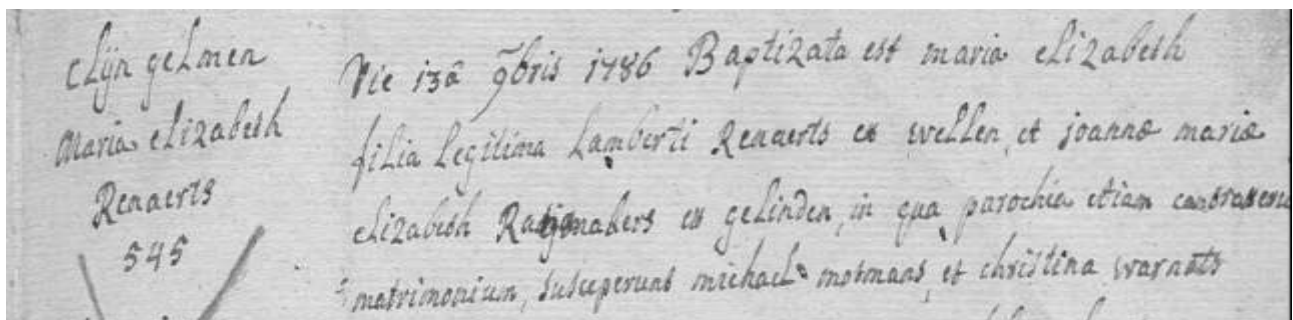 Clijn gelmen
Maria elizabeth
Renaerts
545
Die 13â 9bris 1786 Baptizata est maria elizabeth
filia legitima Lamberti Renaerts ex wellen, et joannæ mariæ
elizabeth ex gelinden, in qua parochia etiam contraxerunt
matrimonium, susceperunt michael motmans, et christina warnots